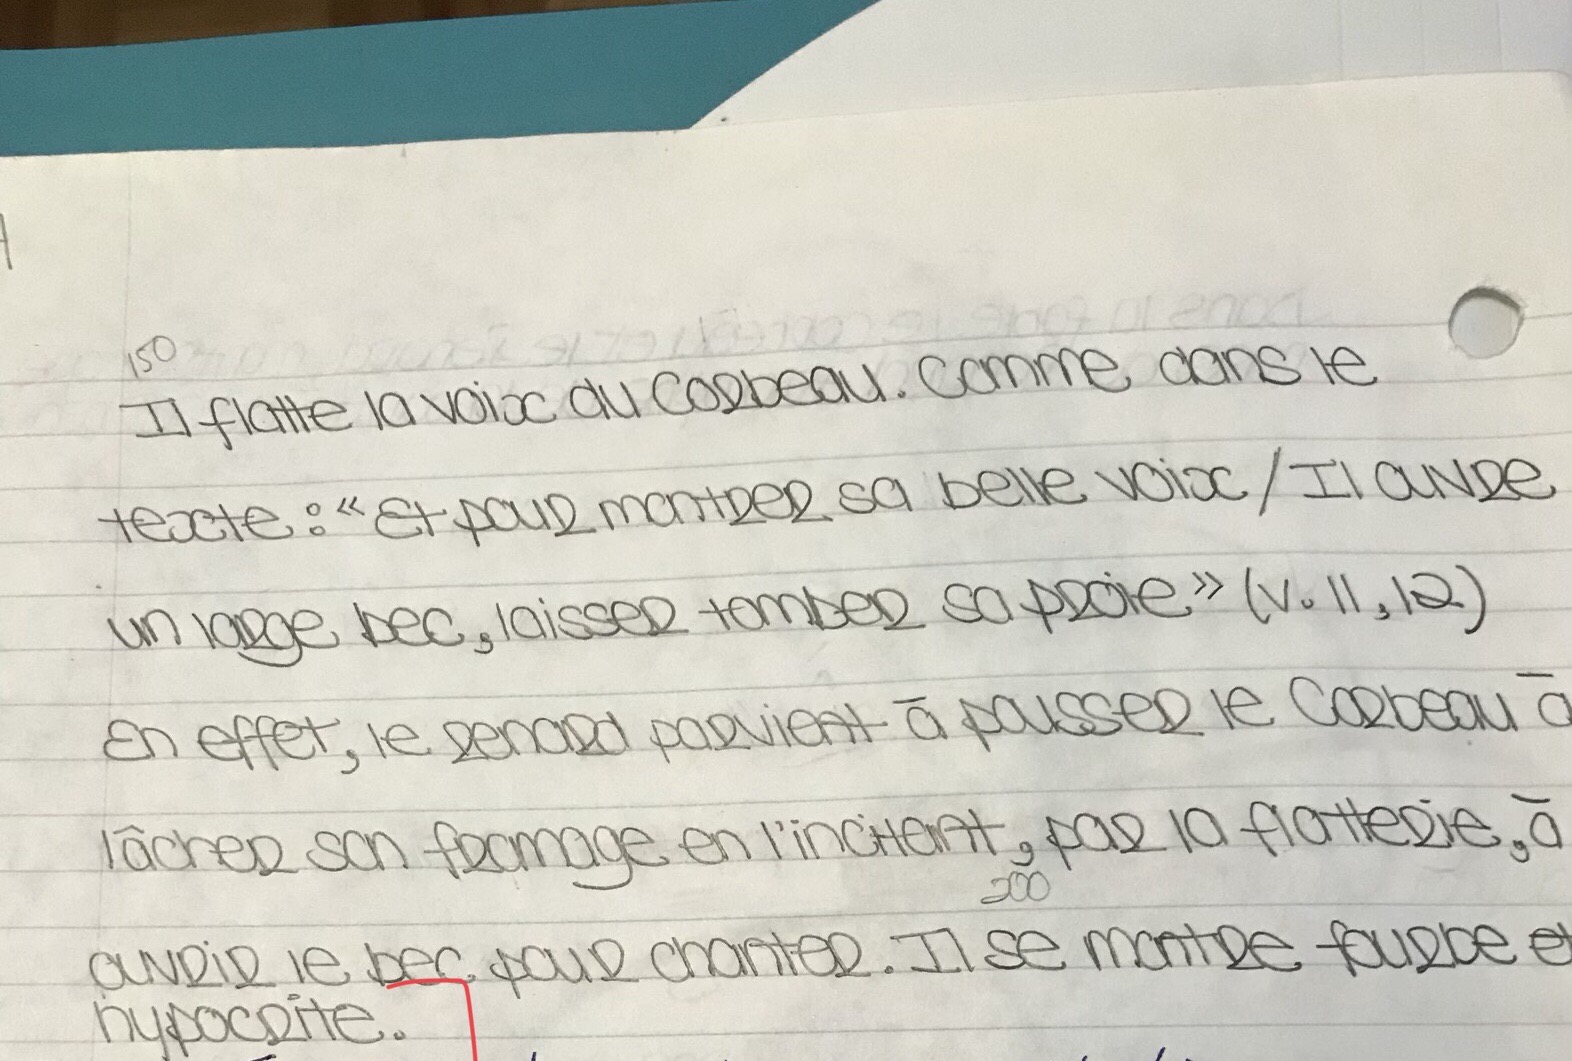 150
Il flatte la voix du Corbeau. Comme dans le
texte : « Et pour montrer sa belle voix / Il ouvre
un large bec, laisser tomber sa proie » (v. 11, 12)
En effet, le renard parvient à pousser le Corbeau à
lâcher son fromage en l'incitant, par la flatterie, à
200
ouvrir le bec pour chanter. Il se montre fourbe et
hypocrite.